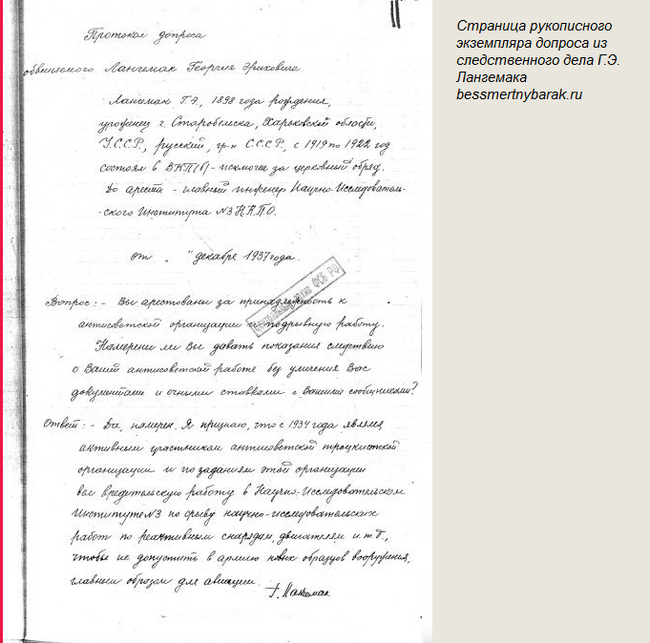 Протокол допроса
обвиняемого Лангемак Георгия Эриховича
Лангемак Г.Э., 1898 года рождения,
уроженец г. Старобельска, Харьковской области,
У.С.С.Р., русский, гр-н С.С.С.Р., с 1919 по 1922 год
состоял в ВКП(б) - исключен за церковный обряд.
До ареста - главный инженер Научно-Исследователь-
-ского Института №3 НКПО.
от „ " декабря 1937 года.
Центральный архив ФСБ РФ
Вопрос: - Вы арестованы за принадлежность к
антисоветской организации и подрывную работу.
Намерены ли Вы давать показания следствию
о Вашей антисоветской работе без уличения Вас
документами и очными ставками с Вашими сообщниками?
Ответ: - Да, намерен. Я признаю, что с 1934 года являлся
активным участником антисоветской троцкистской
организации и по заданиям этой организации
вел вредительскую работу в Научно-Исследовательском
Институте №3 по срыву научно-исследовательских
работ по реактивным снарядам, двигателям и т.д.,
чтобы не допустить в армию новых образцов вооружения,
главным образом для авиации.
Г. Лангемак
Страница рукописного
экземпляра допроса из
следственного дела Г.Э.
Лангемака
bessmertnybarak.ru